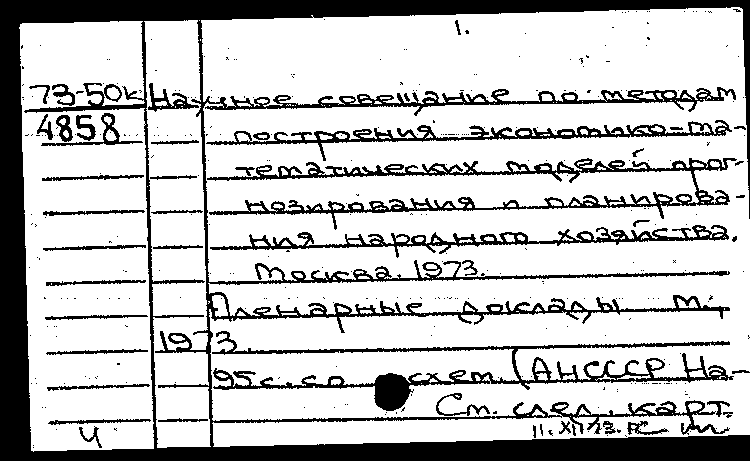 1.
73-50к Научное совещание по методам
4858 построения экономико-ма-
тематических моделей прог-
нозирования и планирова-
ния народного хозяйства.
Москва. 1973.
Пленарные доклады М.,
1973.
95 с. со схем. (АН СССР На-
См. след. карт.
11.XII/73.